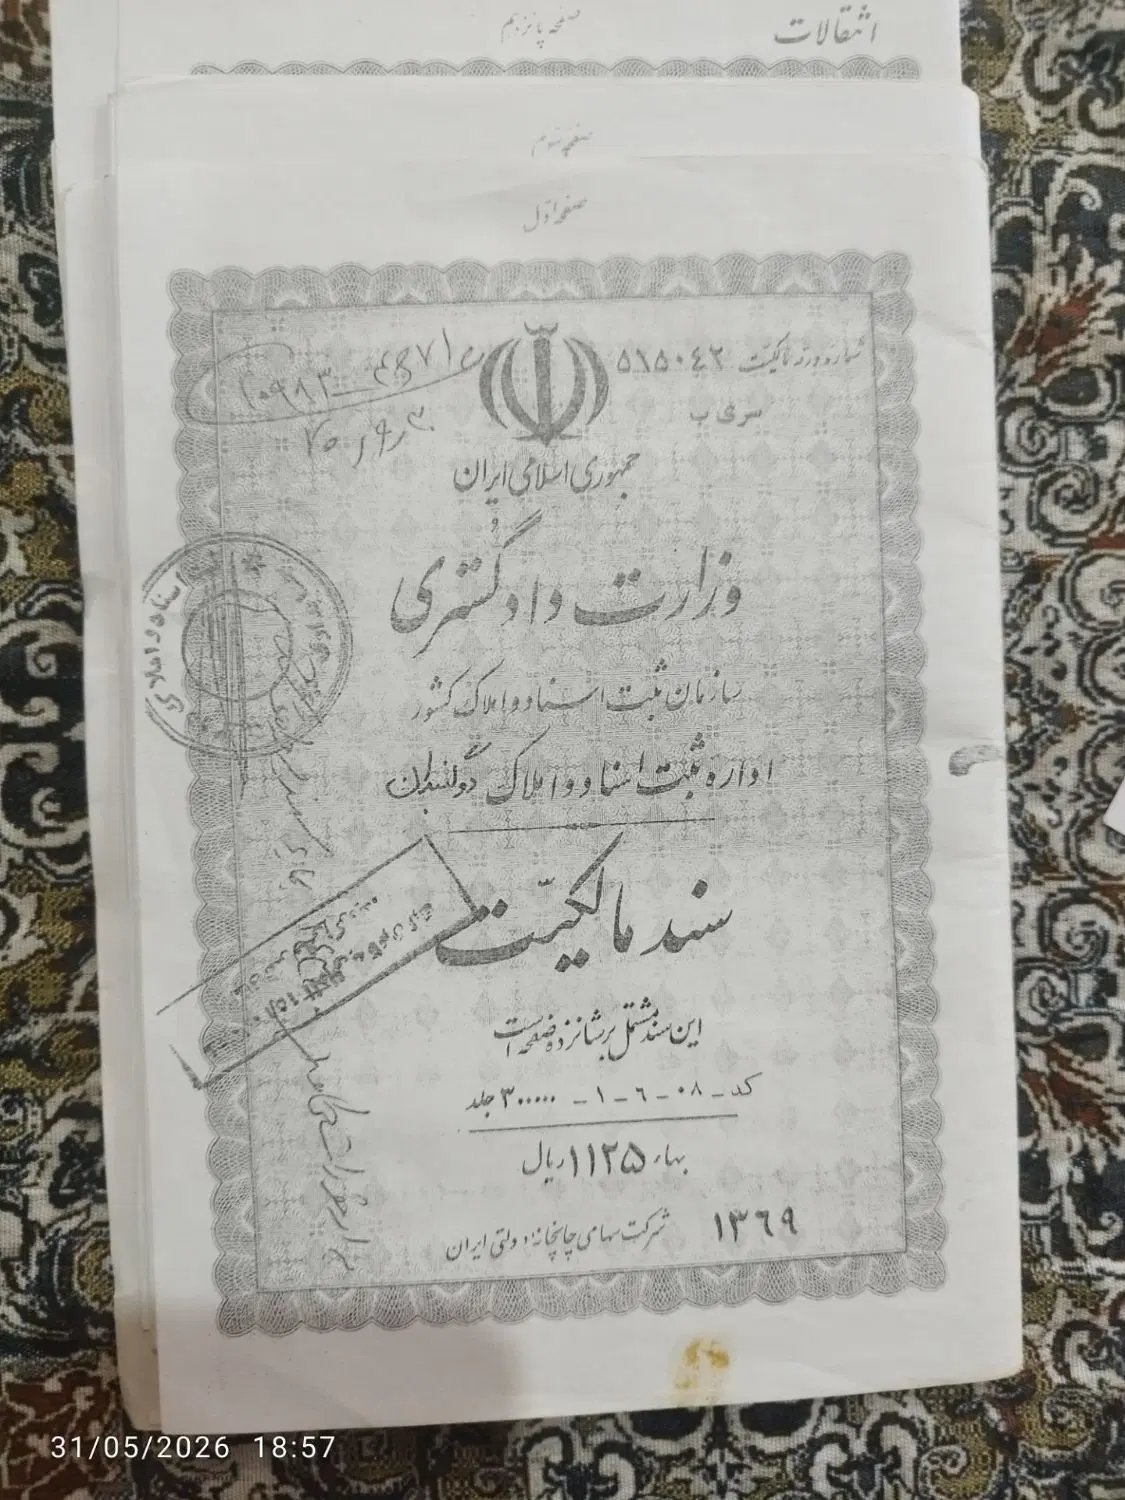 انتقالات
صفحه پانزدهم
صفحه سوم
صفحه اول
شماره ورقه مالکیت ۵۱۵۰۴۲
سری ب
۱۰۹۸۳
جمهوری اسلامی ایران
وزارت دادگستری
سازمان ثبت اسناد و املاک کشور
اداره ثبت اسناد و املاک دوگنبدان
سند مالکیت
این سند مشتمل بر شانزده صفحه است
کد - ۰۸ - ۶ - ۱ - ۳۰۰۰۰۰ جلد
بهاء ۱۱۲۵ ریال
۱۳۶۹ شرکت سهامی چاپخانه دولتی ایران
31/05/2026 18:57